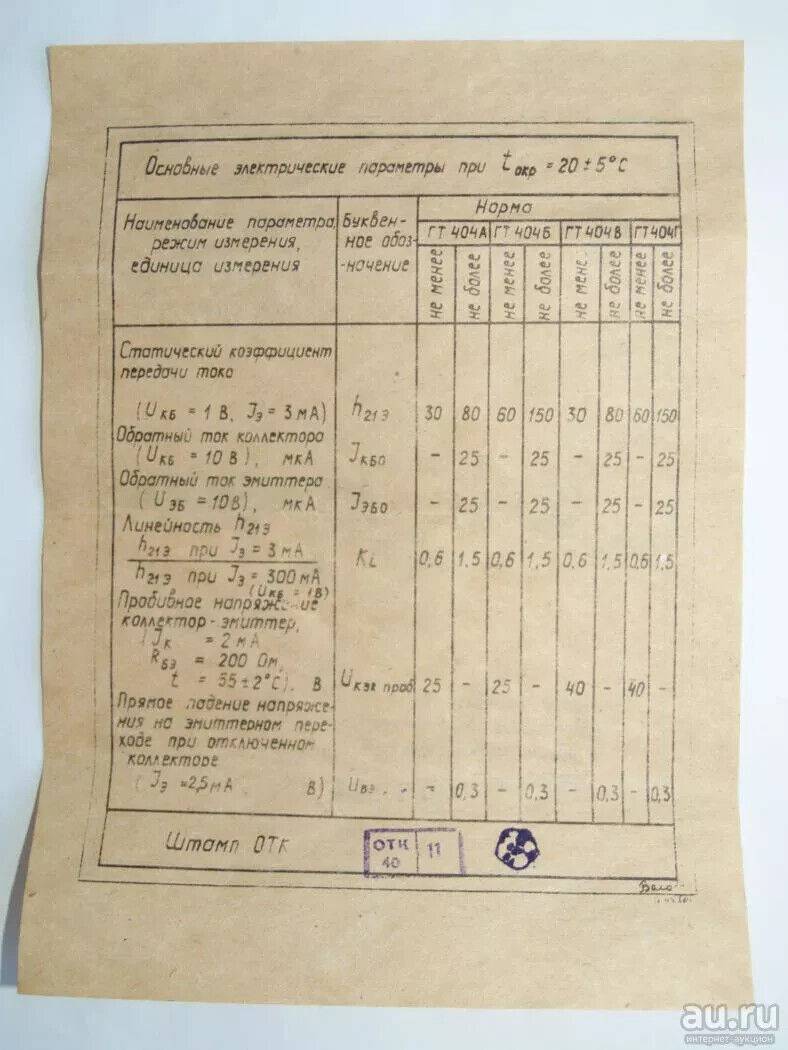 Основные электрические параметры при tокр = 20 ± 5°C
Наименование параметра, режим измерения, единица измерения
Буквен-
ное обоз-
-начение
Норма
ГТ 404А ГТ 404Б ГТ 404В ГТ404Г
не менее не более не менее не более не мене. не более не менее не более
Статический коэффициент
передачи тока
(UКБ = 1 В, JЭ = 3 мА) h21Э 30 80 60 150 30 80 60 150
Обратный ток коллектора
(UКБ = 10 В), мкА JКБО – 25 – 25 – 25 – 25
Обратный ток эмиттера
(UЭБ = 10В), мкА JЭБО – 25 – 25 – 25 – 25
Линейность h21Э
h21Э при JЭ = 3 мА
h21Э при JЭ = 300 мА KL 0,6 1,5 0,6 1,5 0,6 1,5 0,6 1,5
(UКБ = 1В)
Пробивное напряжение
коллектор-эмиттер,
(JК = 2 мА
RБЭ = 200 Ом,
t = 55±2°C). В UКЭR проб 25 – 25 – 40 – 40 –
Прямое падение напряже-
ния на эмиттерном пере-
ходе при отключенном
коллекторе
(JЭ = 2,5 мА В) UВЭ – 0,3 – 0,3 – 0,3 – 0,3
Штамп ОТК
ОТК
40
11
au.ru
интернет-аукцион